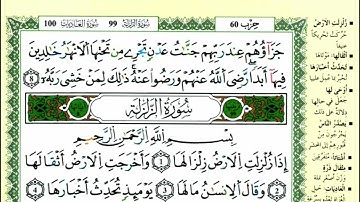 حزب 60
سورة الزلزلة 99
سورة العاديات 100
جَزَآؤُهُمْ عِندَ رَبِّهِمْ جَنَّٰتُ عَدْنٍ تَجْرِے مِن تَحْتِهَا اَلَانْهَٰرُ خَٰلِدِينَ
فِيهَآ أَبَداٗ رَّضِيَ اَللَّهُ عَنْهُمْ وَرَضُواْ عَنْهُ ذَٰلِكَ لِمَنْ خَشِيَ رَبَّهُۥ 8
سُورَةُ اَلزَّلْزَلَةِ
بِسْمِ اِللَّهِ اِلرَّحْمَٰنِ اِلرَّحِيمِ
إِذَا زُلْزِلَتِ اِلَارْضُ زِلْزَالَهَا 1 وَأَخْرَجَتِ اِلَارْضُ أَثْقَالَهَا
2 وَقَالَ اَلِانسَٰنُ مَا لَهَا 3 يَوْمَئِذٖ تُحَدِّثُ أَخْبَارَهَا 4
زُلْزِلَتِ الأرْضُ
أثقالها
تُحَدِّثُ أخبارَها
أوحى لها
يَصْدُرُ النّاسُ
أشتاتًا
مِثقالَ ذرّة